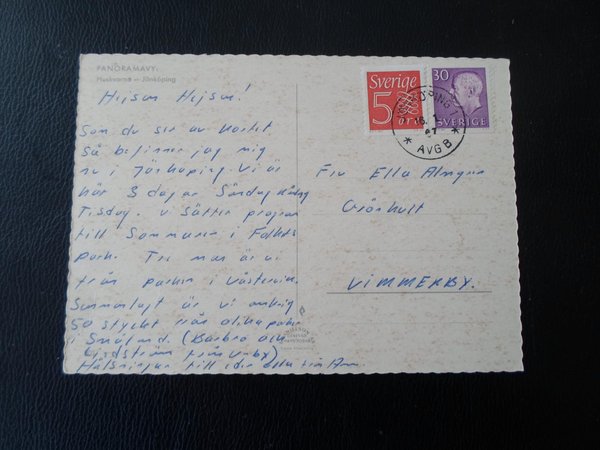 PANORAMAVY.
Huskvarna – Jönköping
Hejsan Hejsan!
Som du ser av kortet
så befinner jag mig
nu i Jönköping. Vi är
här 3 dagar Söndag Måndag
Tisdag. Vi sätter program
till Sommaren i Folkets
park. Tre man är vi
från parken i Västervik.
Sammanlagt är vi omkring
50 stycket från olika parker
i Småland. (Barbro och
Lindström från V-by)
Hälsningar till eder alla från Ann.
Sverige
5
öre
30
SVERIGE
JÖNKÖPING
AVG B
Fru Ella Almgren
Grönhult
VIMMERBY.